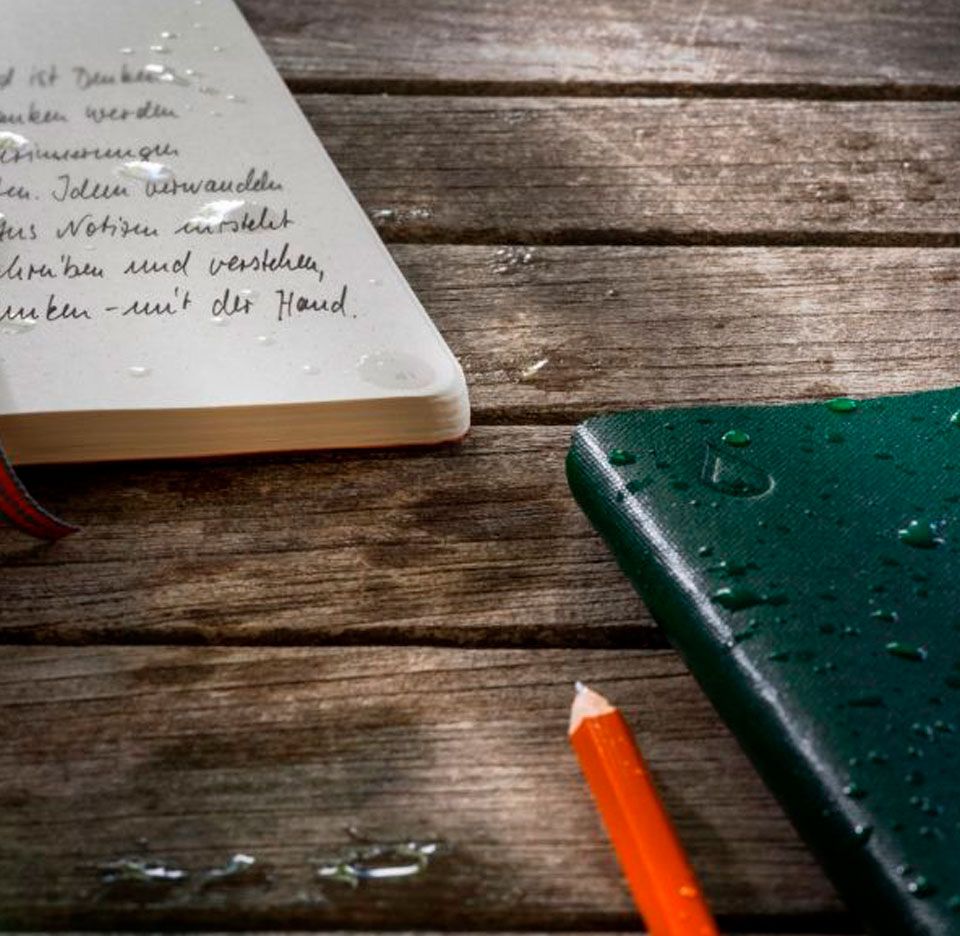 d ist Denken
anken werden
erinnerungen
en. Ideen verwandeln
Aus Notizen entsteht
chreiben und verstehen,
enken - mit der Hand.